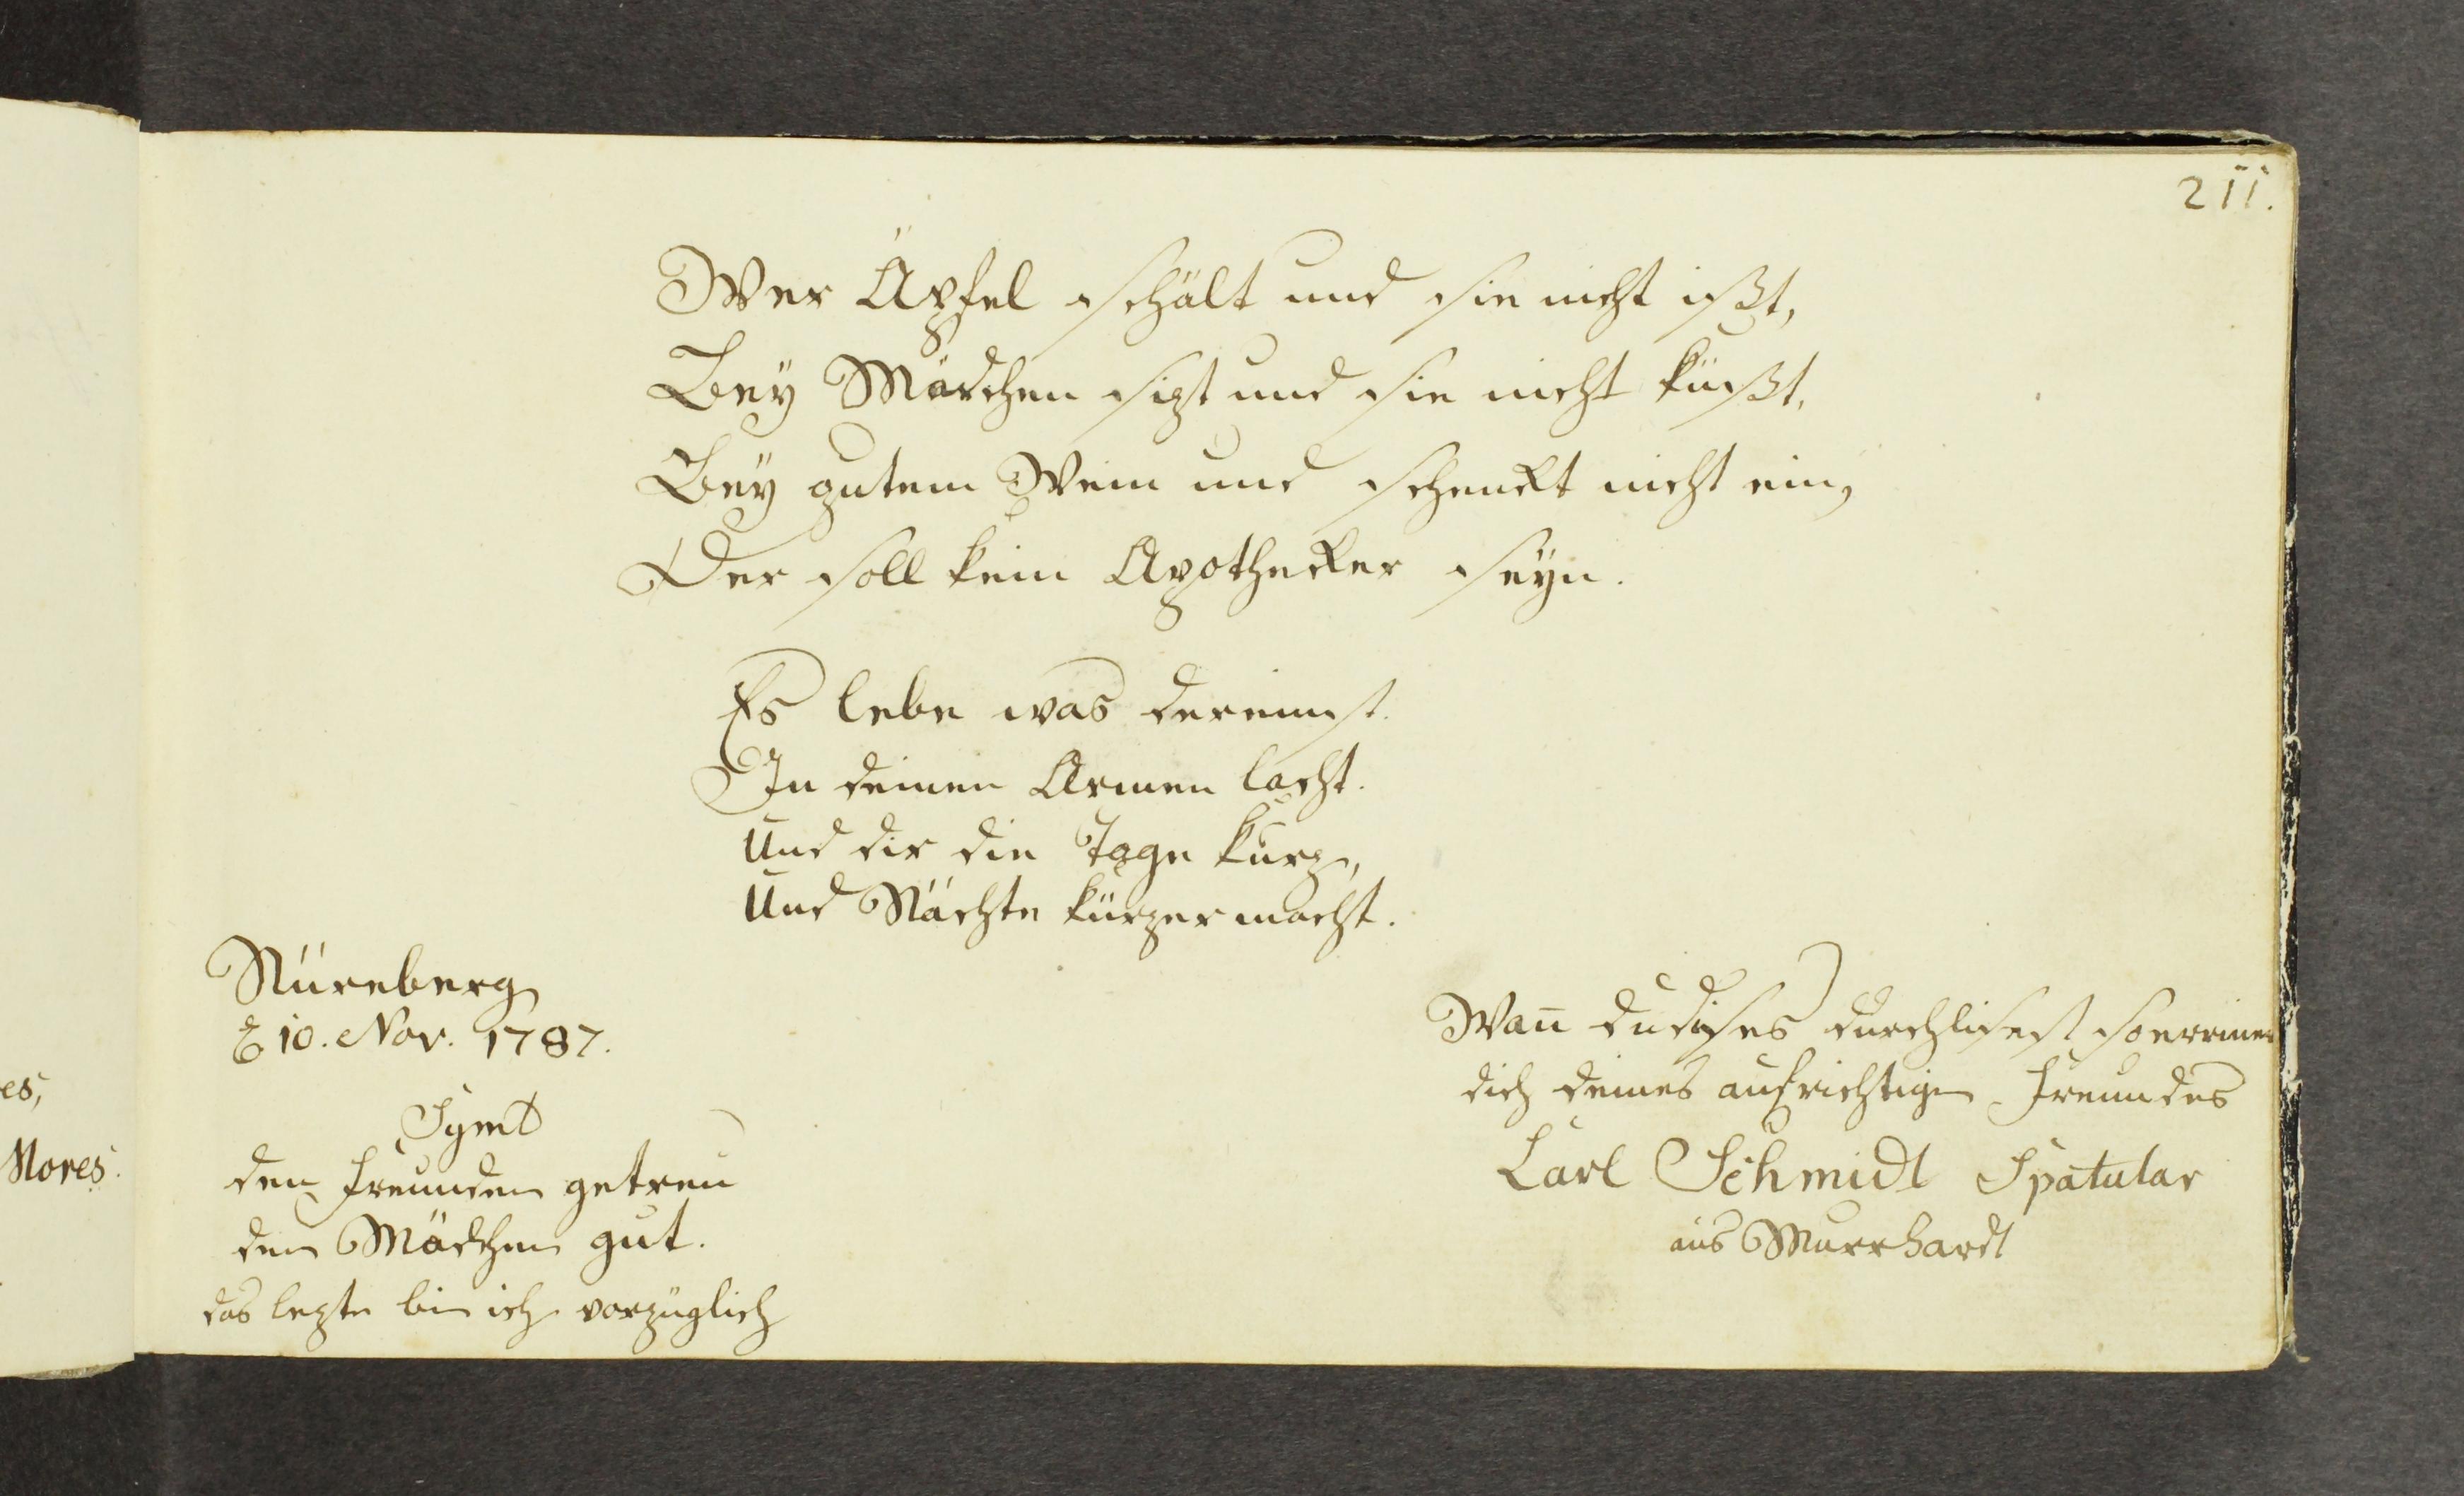 211.
Wer Äpfel schält und sie nicht ißt,
Bey Mädchen sizt und sie nicht küßt,
Bey gutem Wein und schenckt nicht ein,
Der soll kein Apothecker seÿn.
Es lebe was dereinst.
In deinen Armen lacht.
Und dir die Tage kurz,
Und Nächte kürzer macht.
Nürnberg
d 10. Nov. 1787.
Symb
den Freunden getreu
den Mädchen gut.
das lezte bin ich vorzüglich
Wan̄ du dises durchlisest so erriner
dich deines aufrichtigen Freundes
Carl Schmidt Spatular
aus Murrhardt
es,
Mores.